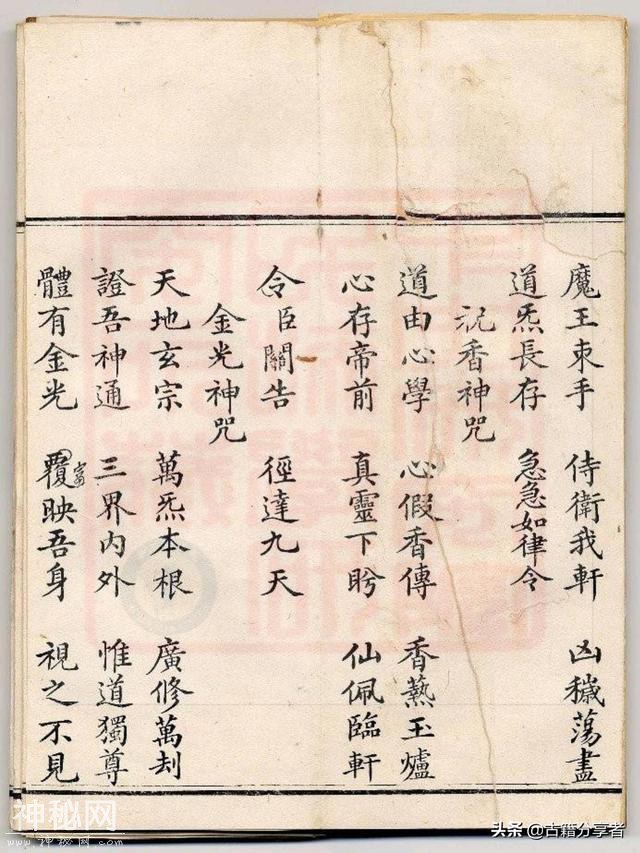 魔王束手 侍衛我軒 凶穢蕩盡
道炁長存 急急如律令
祝香神咒
道由心學 心假香傳 香爇玉爐
心存帝前 真靈下盻 仙佩臨軒
令臣關告 徑達九天
金光神咒
天地玄宗 萬炁本根 廣修萬刦
證吾神通 三界內外 惟道獨尊
體有金光 覆映吾身 視之不見
神秘网
头条 @古籍分享者